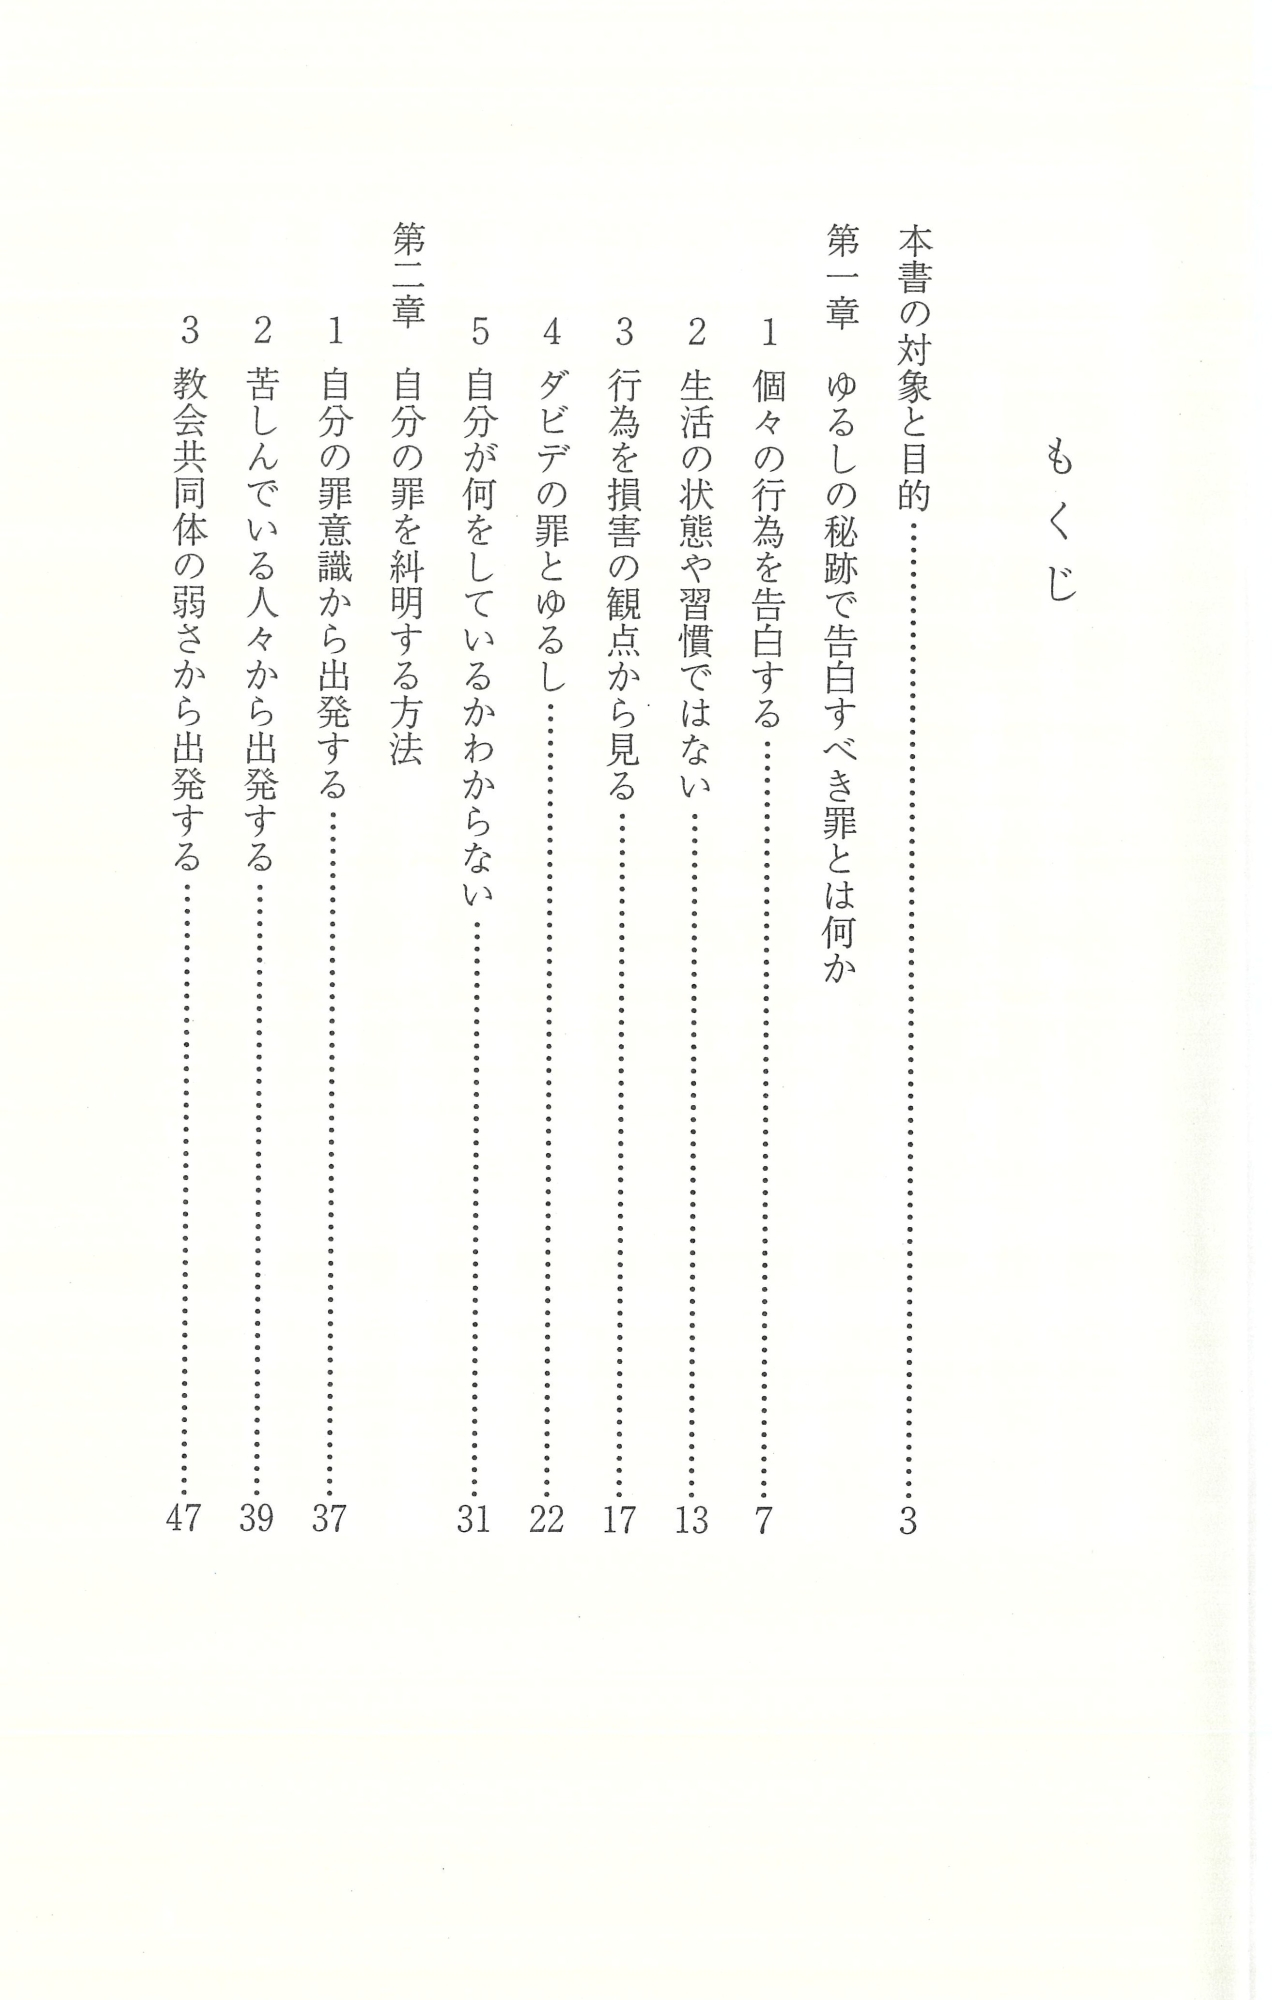 もくじ
本書の対象と目的……………………………3
第一章　ゆるしの秘跡で告白すべき罪とは何か
1　個々の行為を告白する……………………………7
2　生活の状態や習慣ではない……………………………13
3　行為を損害の観点から見る……………………………17
4　ダビデの罪とゆるし……………………………22
5　自分が何をしているかわからない……………………………31
第二章　自分の罪を糾明する方法
1　自分の罪意識から出発する……………………………37
2　苦しんでいる人々から出発する……………………………39
3　教会共同体の弱さから出発する……………………………47